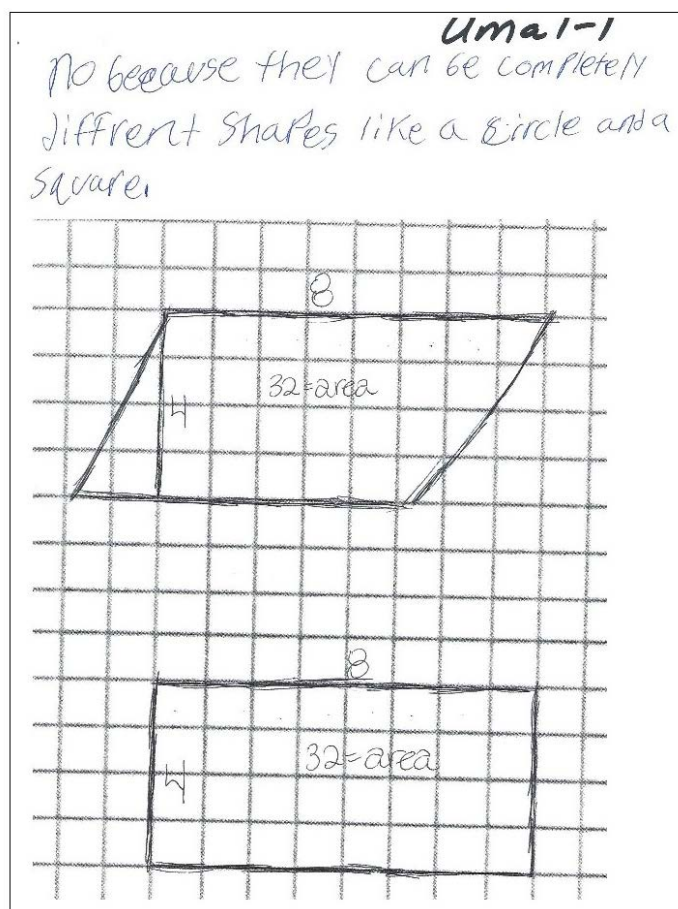 Uma 1-1
no because they can be completely
diffrent shapes like a circle and a
square.
8
32=area
4
8
32=area
4